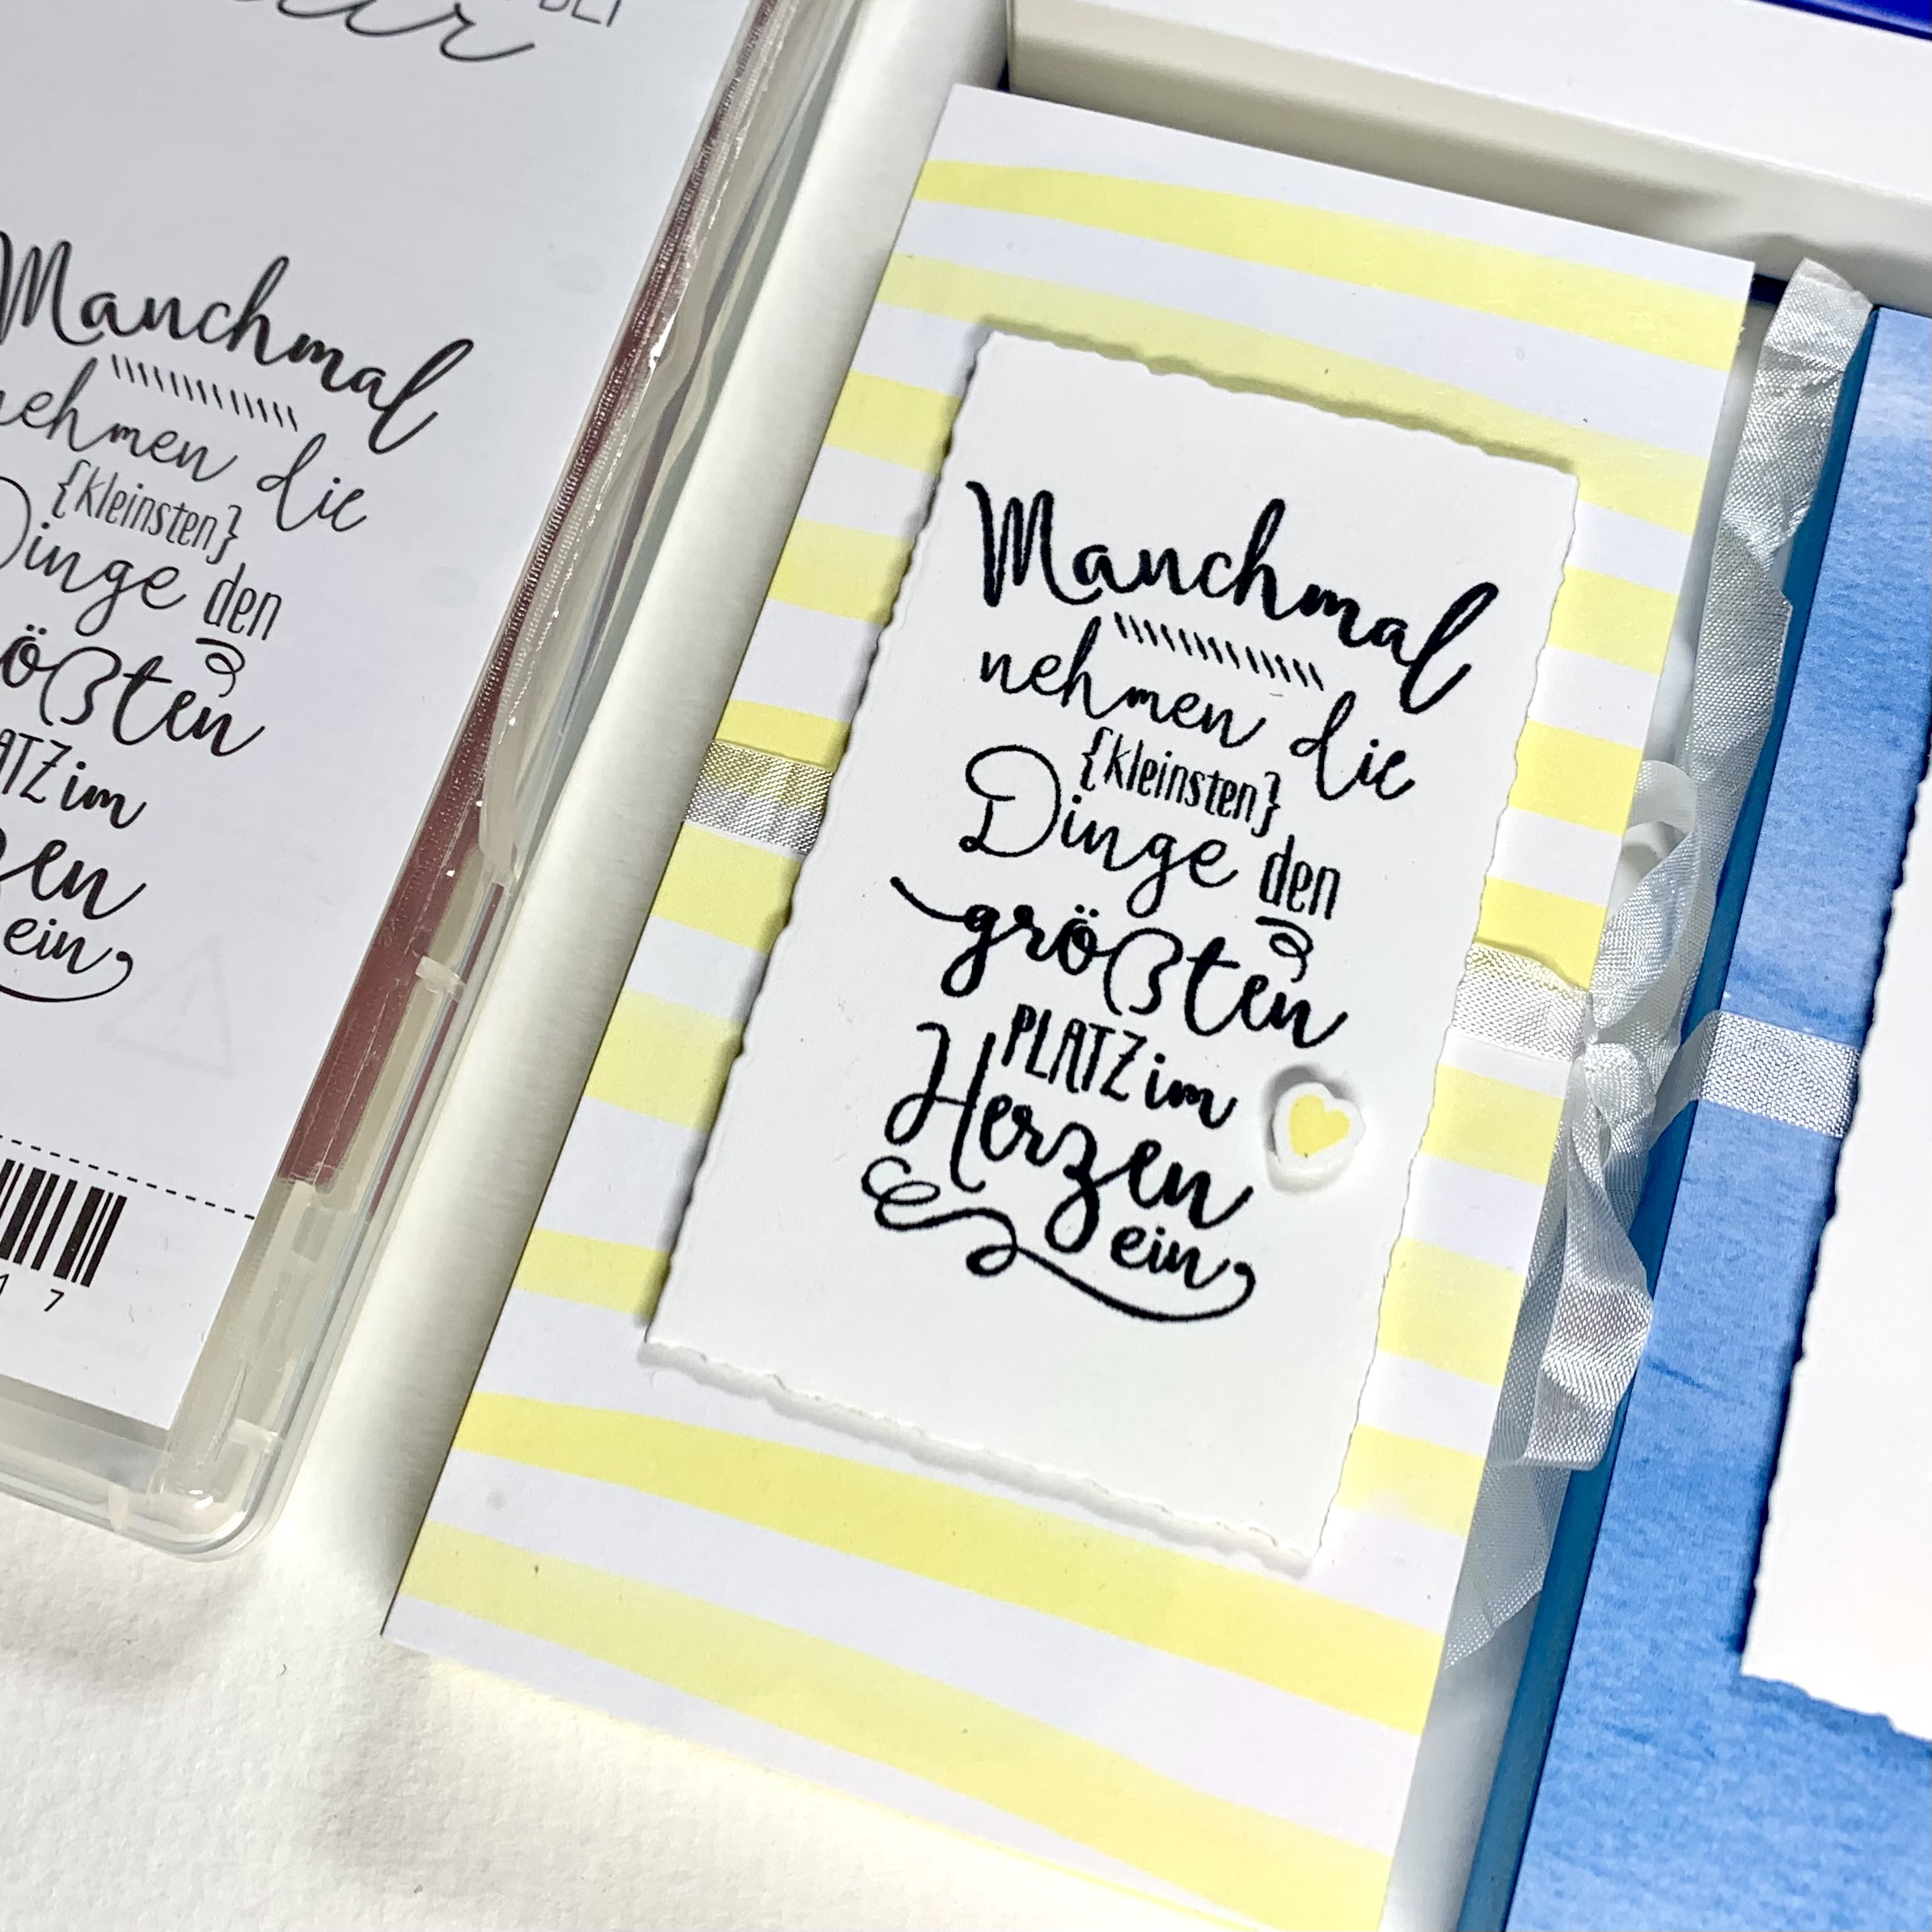 Manchmal
nehmen die
{kleinsten}
Dinge den
ößten
ATZ im
zen
ein
1 7
Manchmal
nehmen die
{kleinsten}
Dinge den
größten
PLATZ im
Herzen
ein